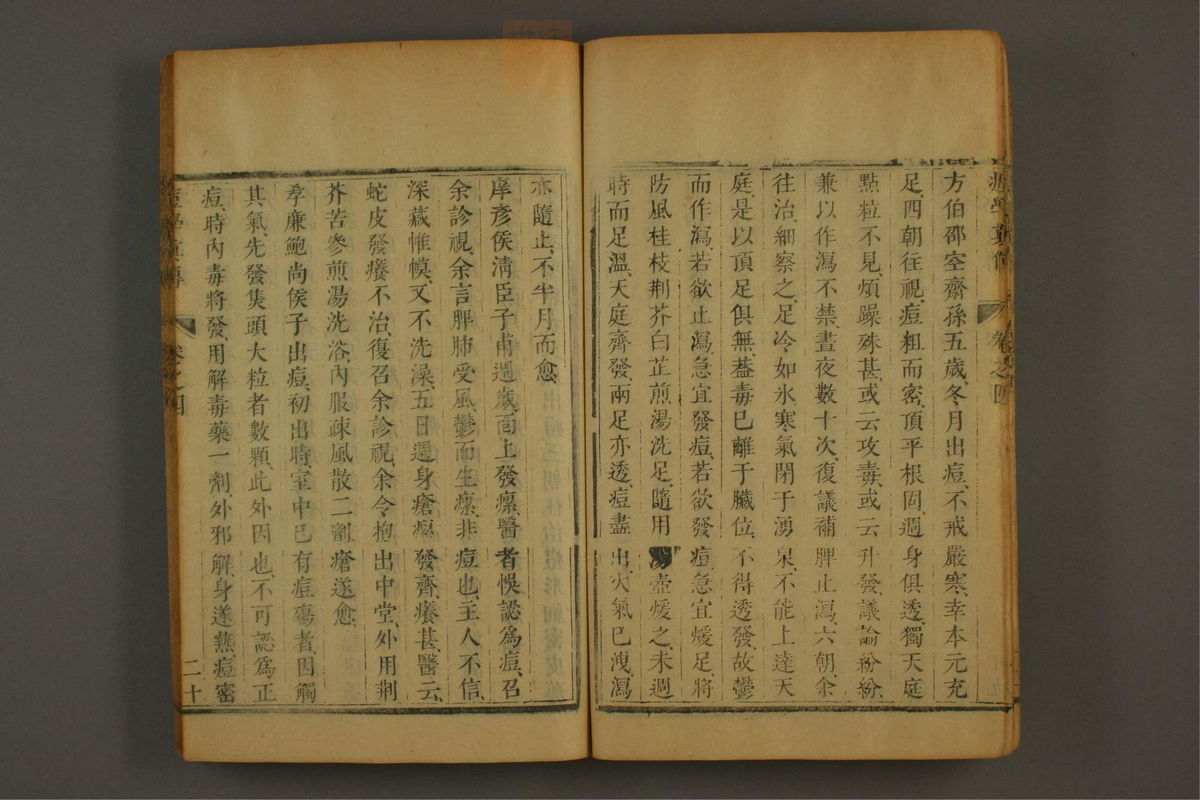 方伯邵空齋孫五歲、冬月出痘、不戒嚴寒、幸本元充
足、四朝往視、痘粗而密、頂平根固、週身俱透、獨天庭
點粒不見、煩躁殊甚、或云攻毒、或云升發、議論紛紛、
兼以作瀉不禁、晝夜數十次、復議補脾止瀉、六朝余
往治、細察之、足冷如氷、寒氣閉于湧泉、不能上達天
庭、是以頂足俱無、蓋毒已離于臟位、不得透發、故鬱
而作瀉、若欲止瀉、急宜發痘、若欲發痘、急宜煖足、將
防風桂枝荆芥白芷煎湯洗足、隨用湯壺煖之、未週
時而足溫、天庭齊發、兩足亦透、痘盡出、火氣已洩、瀉
亦隨止、不半月而愈、
庠彥侯清臣子甫週歲、面上發瘰、醫者悞認爲痘、召
余診視、余言脾肺受風、鬱而生瘰、非痘也、主人不信、
深藏帷幙、又不洗澡、五日週身瘡瘰發齊、癢甚、醫云
蛇皮發癢不治、復召余診視、余令抱出中堂、外用荆
芥苦參煎湯洗浴、內服疎風散二劑、瘡遂愈、
孝廉鮑尚侯子出痘、初出時、室中已有痘殤者、因觸
其氣、先發集頭大粒者數顆、此外因也、不可認爲正
痘、時內毒將發、用解毒藥一劑、外邪解、身遂熱、痘密
卷之四
二十